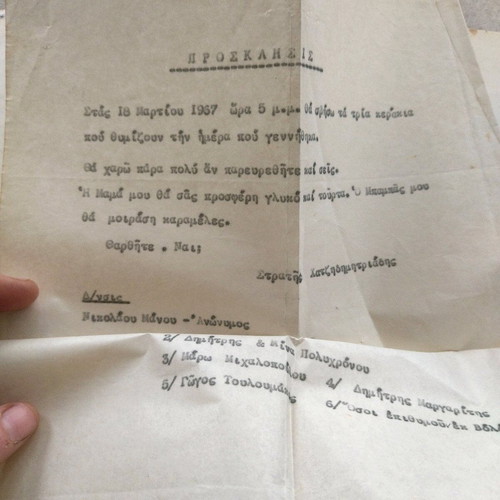 ΠΡΟΣΚΛΗΣΙΣ
Στάς 18 Μαρτίου 1967 ὥρα 5 μ.μ. θά σβήσω τά τρία κεράκια
πού θυμίζουν τήν ἡμέρα πού γεννήθηκα.
Θά χαρῶ πάρα πολύ ἄν παρευρεθῆτε καί σεῖς.
Ἡ Μαμά μου θά σᾶς προσφέρη γλυκό καί τούρτα. Ὁ Μπαμπᾶς μου
θά μοιράση καραμέλες.
Θαρθῆτε . Ναι;
Στρατῆς Χατζηδημητριάδης
Δ/νσις
Νικολάου Μάνου - Ἀνώνυμος
2/ Δημήτρης & Μένα Πολυχρόνου
3/ Μάρω Μιχαλοπούλου
4/ Δημήτρης Μαργαρίτης
5/ Γῶγος Τουλουμάκος
6/ Ὅσοι ἐπιθυμοῦν